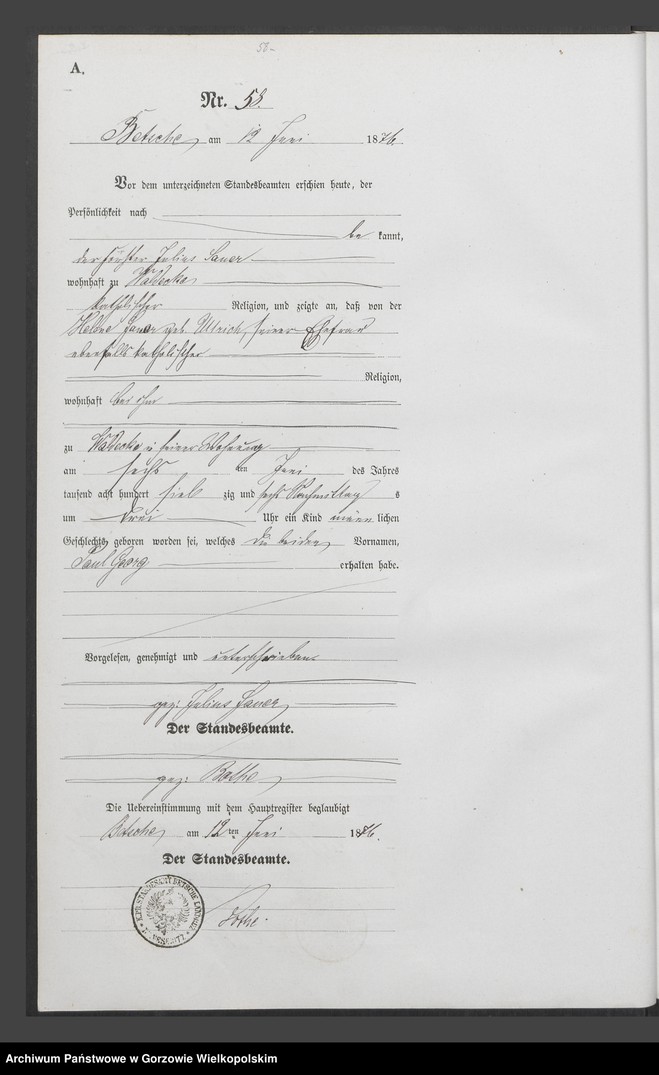 58.
A.
Nr. 58.
Betsche am 12 Juni 1876.
Vor dem unterzeichneten Standesbeamten erschien heute, der
Persönlichkeit nach
be kannt,
der Julius Sauer
wohnhaft zu Waldecke
katholischer Religion, und zeigte an, daß von der
Helene Sauer geb. Ulrich, seiner Ehefrau
ebenfalls katholischer
Religion,
wohnhaft bei ihm
zu Waldecke in seiner Wohnung
am sechs ten Juni des Jahres
tausend acht hundert sieb zig und sechs Nachmittag s
um drei Uhr ein Kind männ lichen
Geschlechts geboren worden sei, welches die beiden Vornamen,
Paul Georg erhalten habe.
Vorgelesen, genehmigt und unterschrieben
gez: Julius Sauer
Der Standesbeamte.
gez: Bothe
Die Uebereinstimmung mit dem Hauptregister beglaubigt
Betsche am 12ten Juni 1876.
Der Standesbeamte.
Bothe.
Archiwum Państwowe w Gorzowie Wielkopolskim